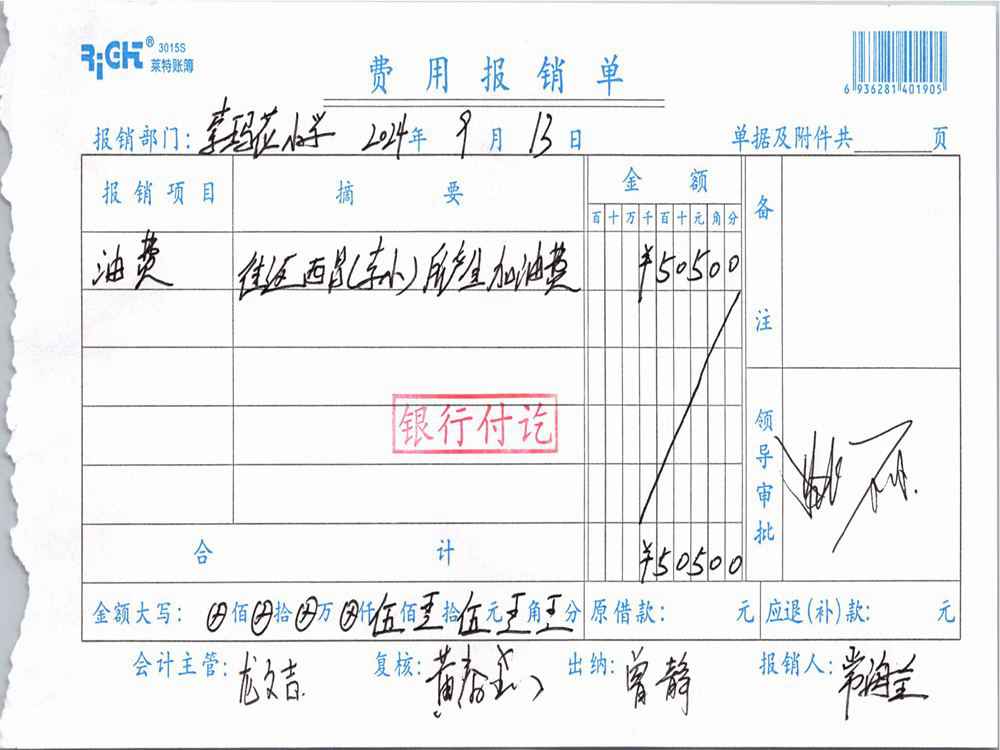 RiGHT® 3015S
莱特账簿
费用报销单
6 936281 401905
报销部门: 索玛花小学 2024年 9月 13日 单据及附件共 页
报销项目 摘要 金额 备注
百十万千百十元角分
油费 往返西昌(李小)所产生加油费 ¥50500
银行付讫
领导审批
合计 ¥50500
金额大写: ⊗佰⊗拾⊗万⊗仟伍佰零拾伍元零角零分 原借款: 元 应退(补)款: 元
会计主管: 龙文吉 复核: 黄 出纳: 曾静 报销人: